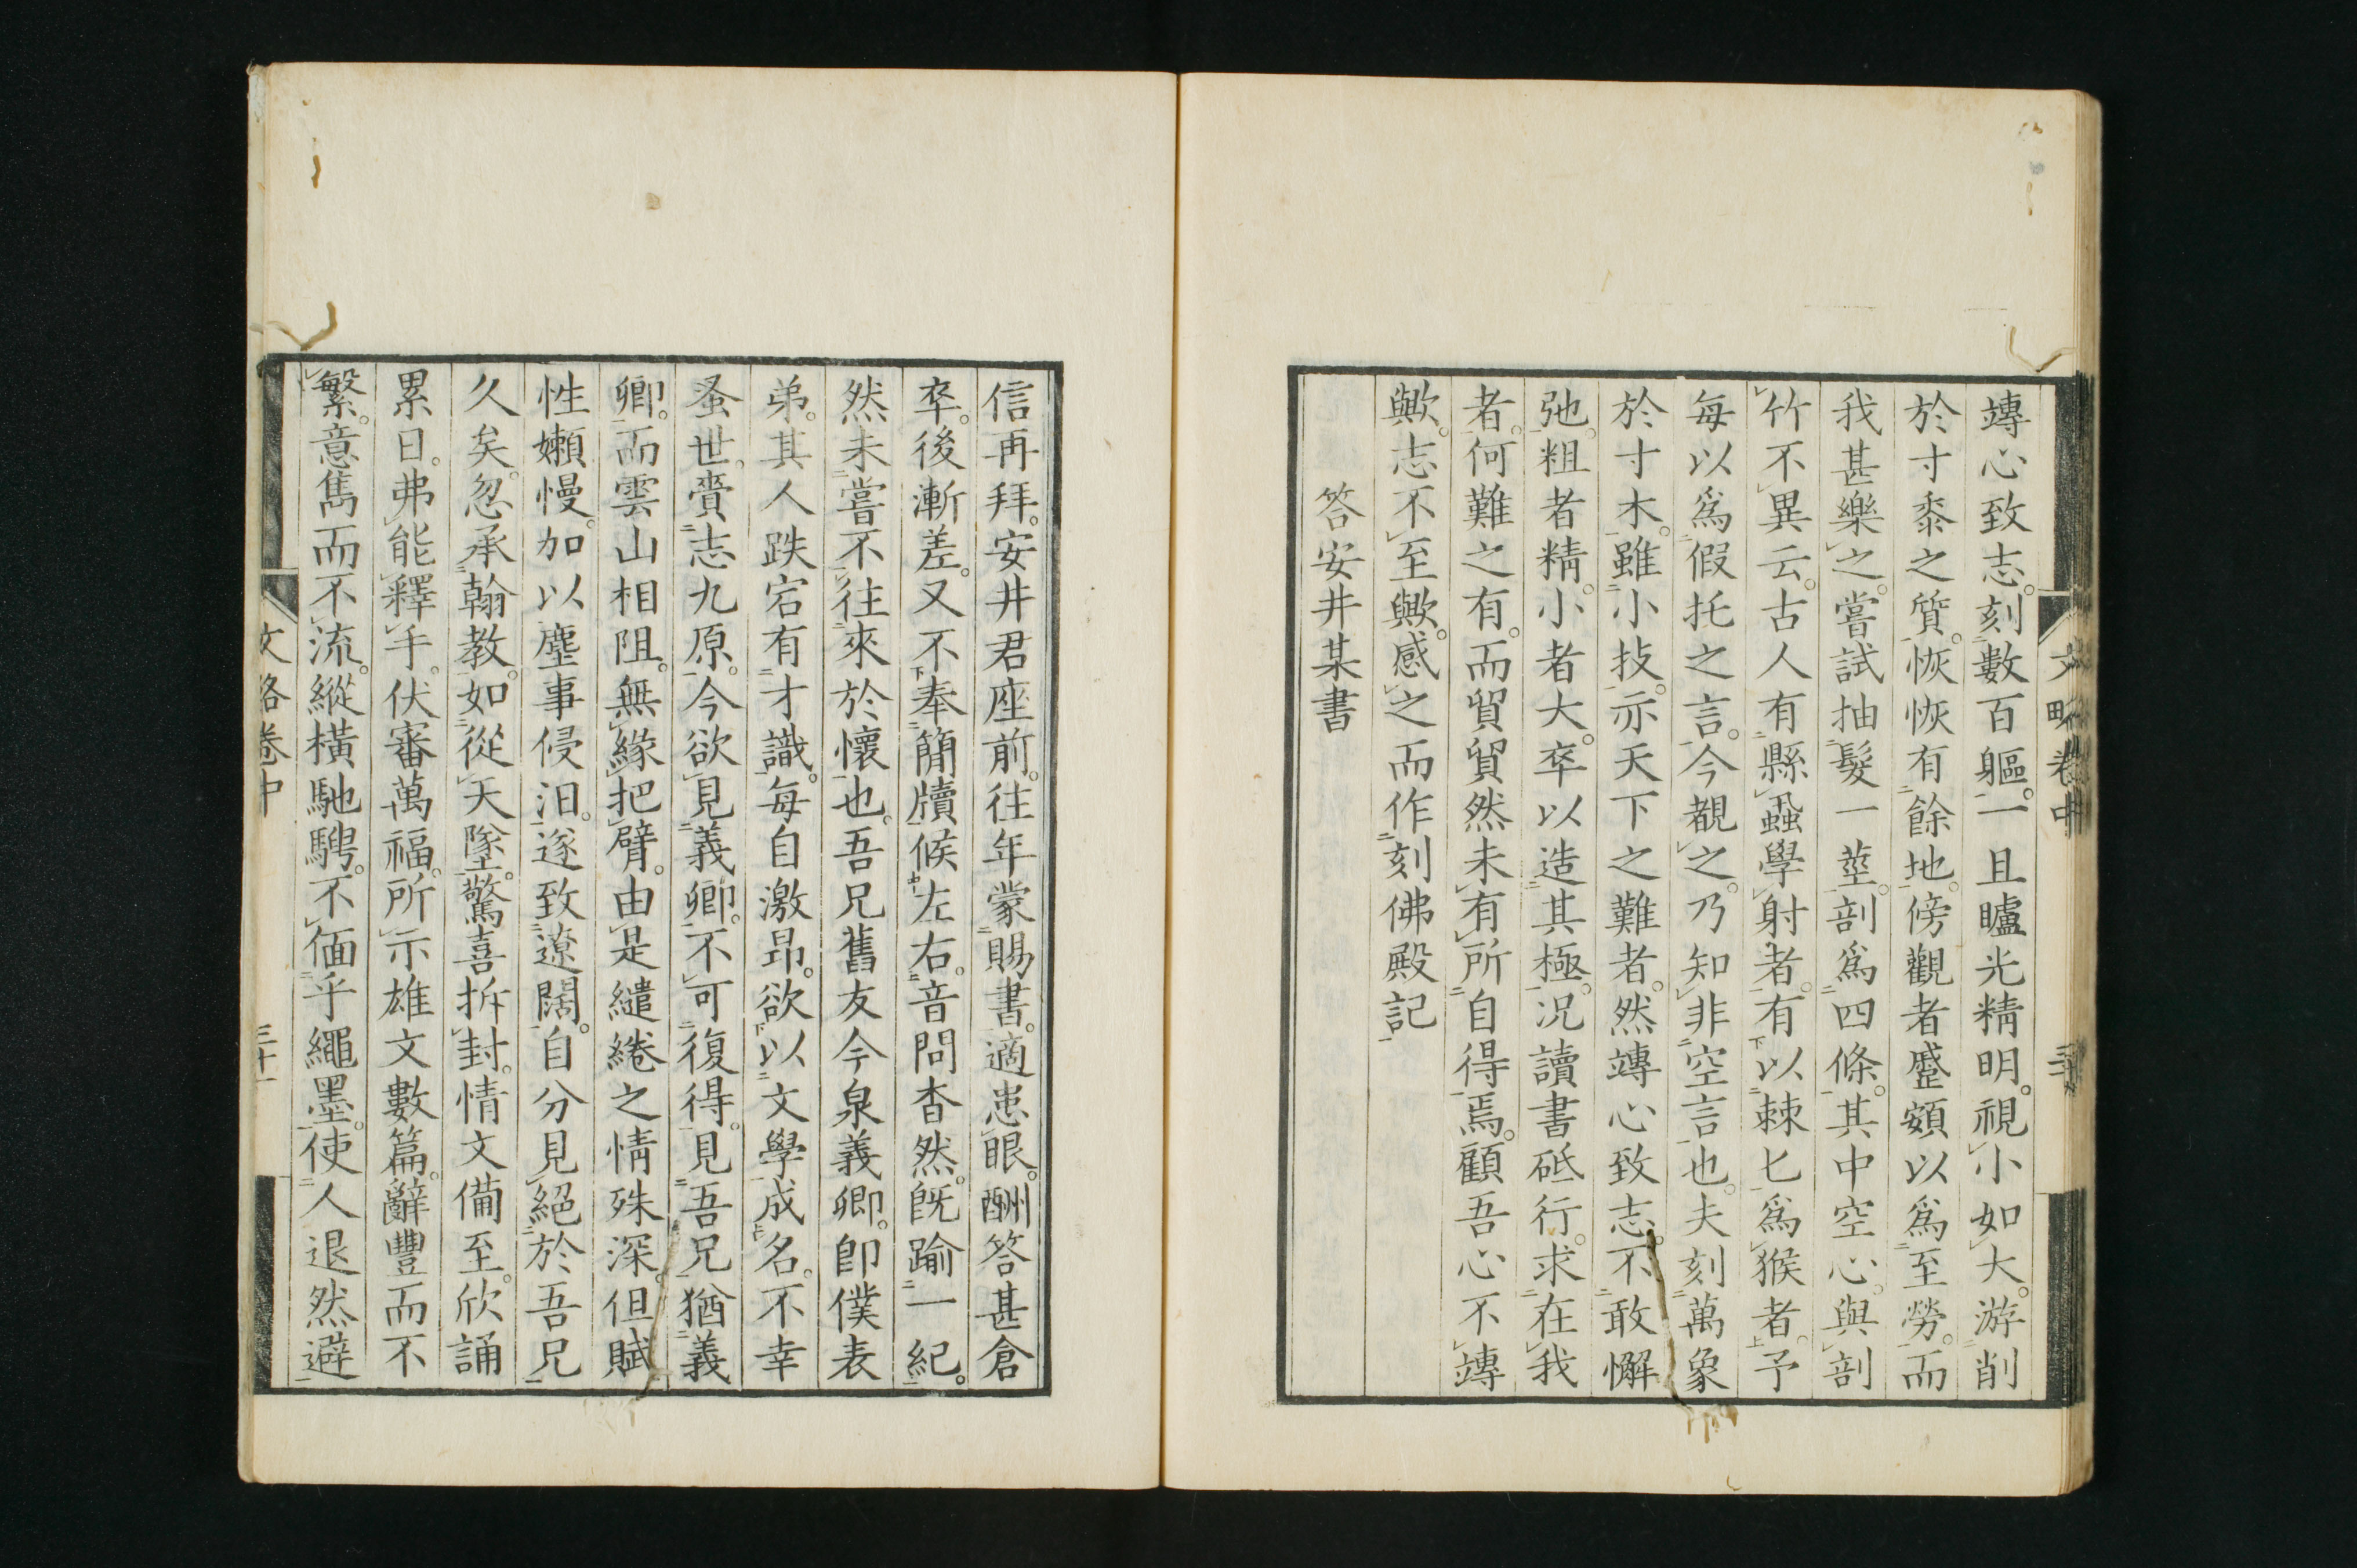 竱心致志。刻數百軀。一且矑光精明。視小如大。游削
於寸黍之質。恢恢有餘地。傍觀者蹙頞以爲至勞。而
我甚樂之。嘗試抽髮一莖。剖爲四條。其中空心。與剖
竹不異云。古人有縣蝨學射者。有以棘匕爲猴者。予
每以爲假托之言。今覩之。乃知非空言也。夫刻萬象
於寸木。雖小技。亦天下之難者。然竱心致志。不敢懈
弛。粗者精。小者大。卒以造其極。況讀書砥行。求在我
者。何難之有。而貿貿然未有所自得焉。顧吾心不竱
歟。志不至歟。感之而作刻佛殿記
答安井某書
文略卷中
信再拜。安井君座前。往年蒙賜書。適患眼。酬答甚倉
卒。後漸差。又不奉簡牘候左右。音問杳然。既踰一紀。
然未嘗不往來於懷也。吾兄舊友今泉義卿。卽僕表
弟。其人跌宕有才識。每自激昂。欲以文學成名。不幸
蚤世。賚志九原。今欲見義卿。不可復得。見吾兄猶義
卿。而雲山相阻。無緣把臂。由是繾綣之情殊深。但賦
性嬾慢。加以塵事侵汩。遂致遼闊。自分見絕於吾兄
久矣。忽承翰教。如從天墜。驚喜拆封。情文備至。欣誦
累日。弗能釋手。伏審萬福。所示雄文數篇。辭豐而不
繁。意雋而不流。縱橫馳騁。不偭乎繩墨。使人退然避
文略卷中
三十一